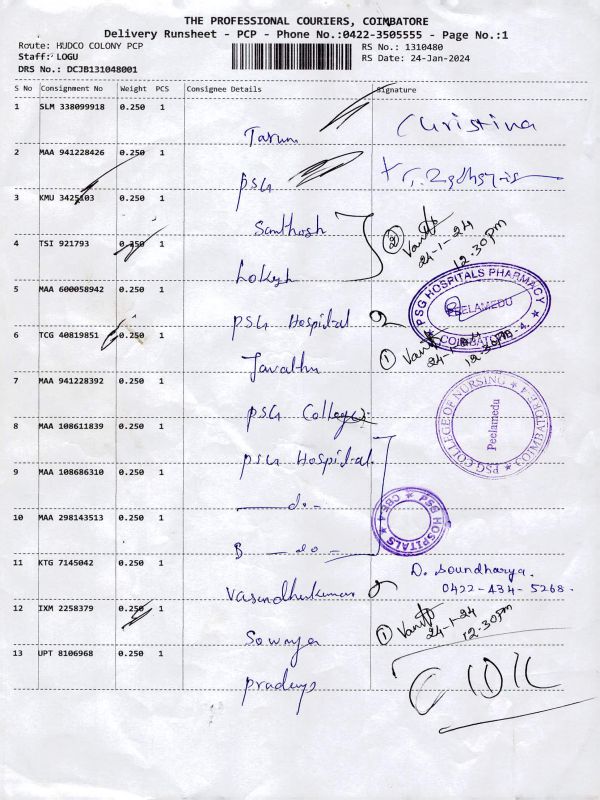 THE PROFESSIONAL COURIERS, COIMBATORE
Delivery Runsheet - PCP - Phone No.:0422-3505555 - Page No.:1
Route: HUDCO COLONY PCP
Staff: LOGU
DRS No.: DCJB131048001
RS No.: 1310480
RS Date: 24-Jan-2024
S No Consignment No Weight PCS Consignee Details Signature
1 SLM 338099918 0.250 1
Tarun Christina
2 MAA 941228426 0.250 1
PSG
3 KMU 3425103 0.250 1
Santhosh
4 TSI 921793 0.250 1
Lokesh
2 24-1-24
12.30pm
5 MAA 600058942 0.250 1
PSG Hospital
PSG HOSPITALS PHARMACY
PEELAMEDU
COIMBATORE-4.
6 TCG 40819851 0.250 1
1 24-1-24
12.30pm
7 MAA 941228392 0.250 1
PSG College
PSG COLLEGE OF NURSING
Peelamedu
COIMBATORE-4
8 MAA 108611839 0.250 1
PSG Hospital
9 MAA 108686310 0.250 1
— do —
PSG HOSPITALS
CBE-4
10 MAA 298143513 0.250 1
— do —
11 KTG 7145042 0.250 1
Vasandhakumar
D. Soundharya.
0422-434-5268.
12 IXM 2258379 0.250 1
Sowmya
1 24-1-24
12.30pm
13 UPT 8106968 0.250 1